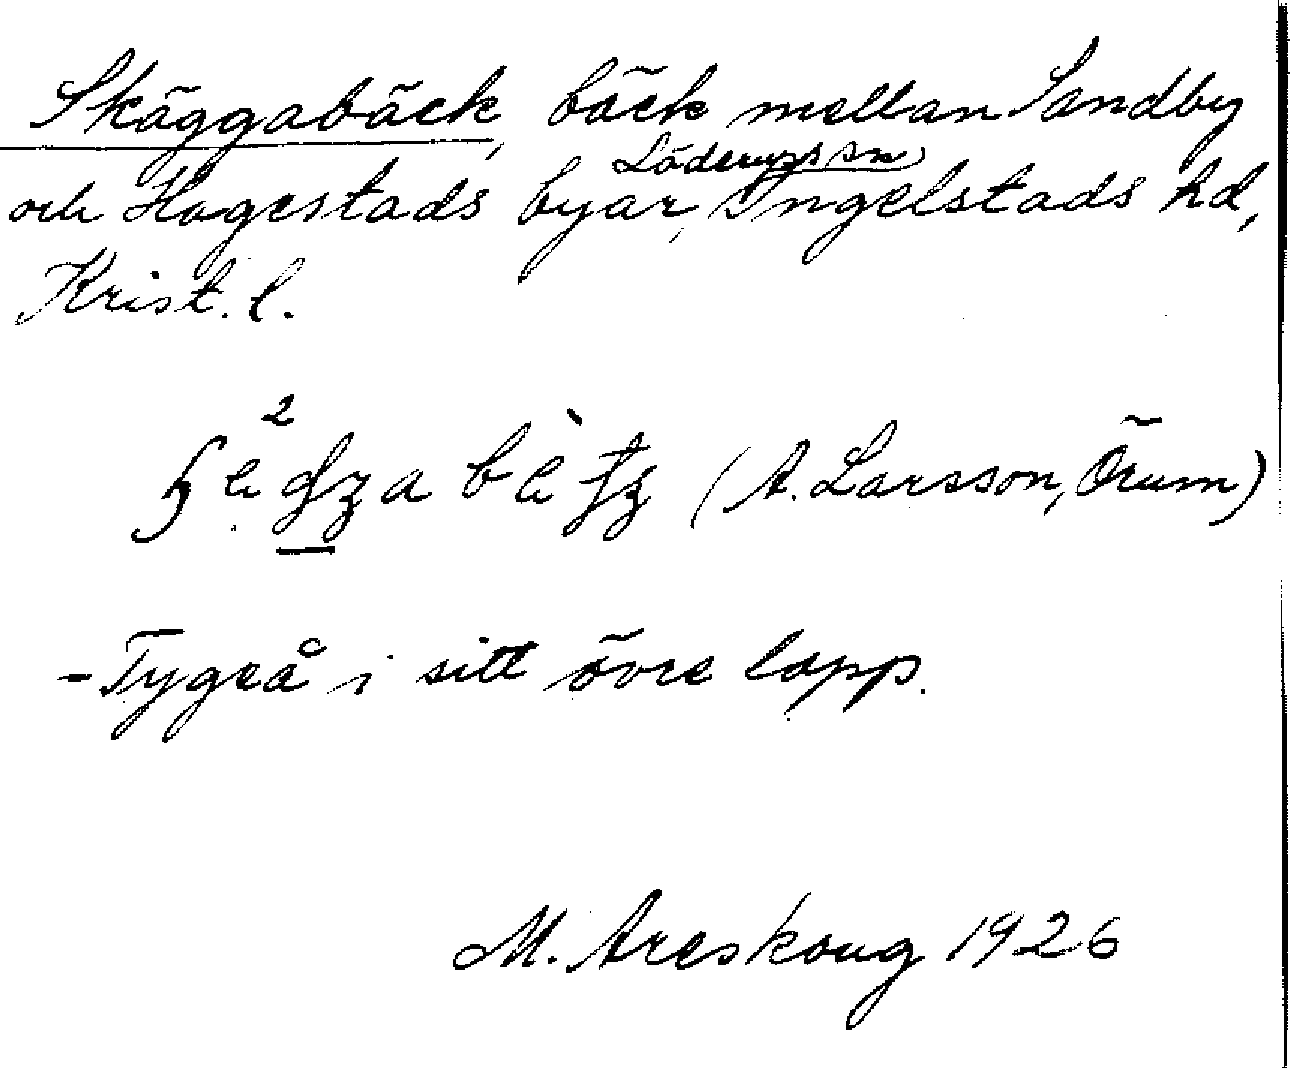 Skäggabäck, bäck mellan Sandby
Löderups sn
och Hagestads byar, Ingelstads hd,
Krist. l.
(A. Larsson, Örum)
- Tygeå i sitt övre lopp.
M. Areskoug 1926